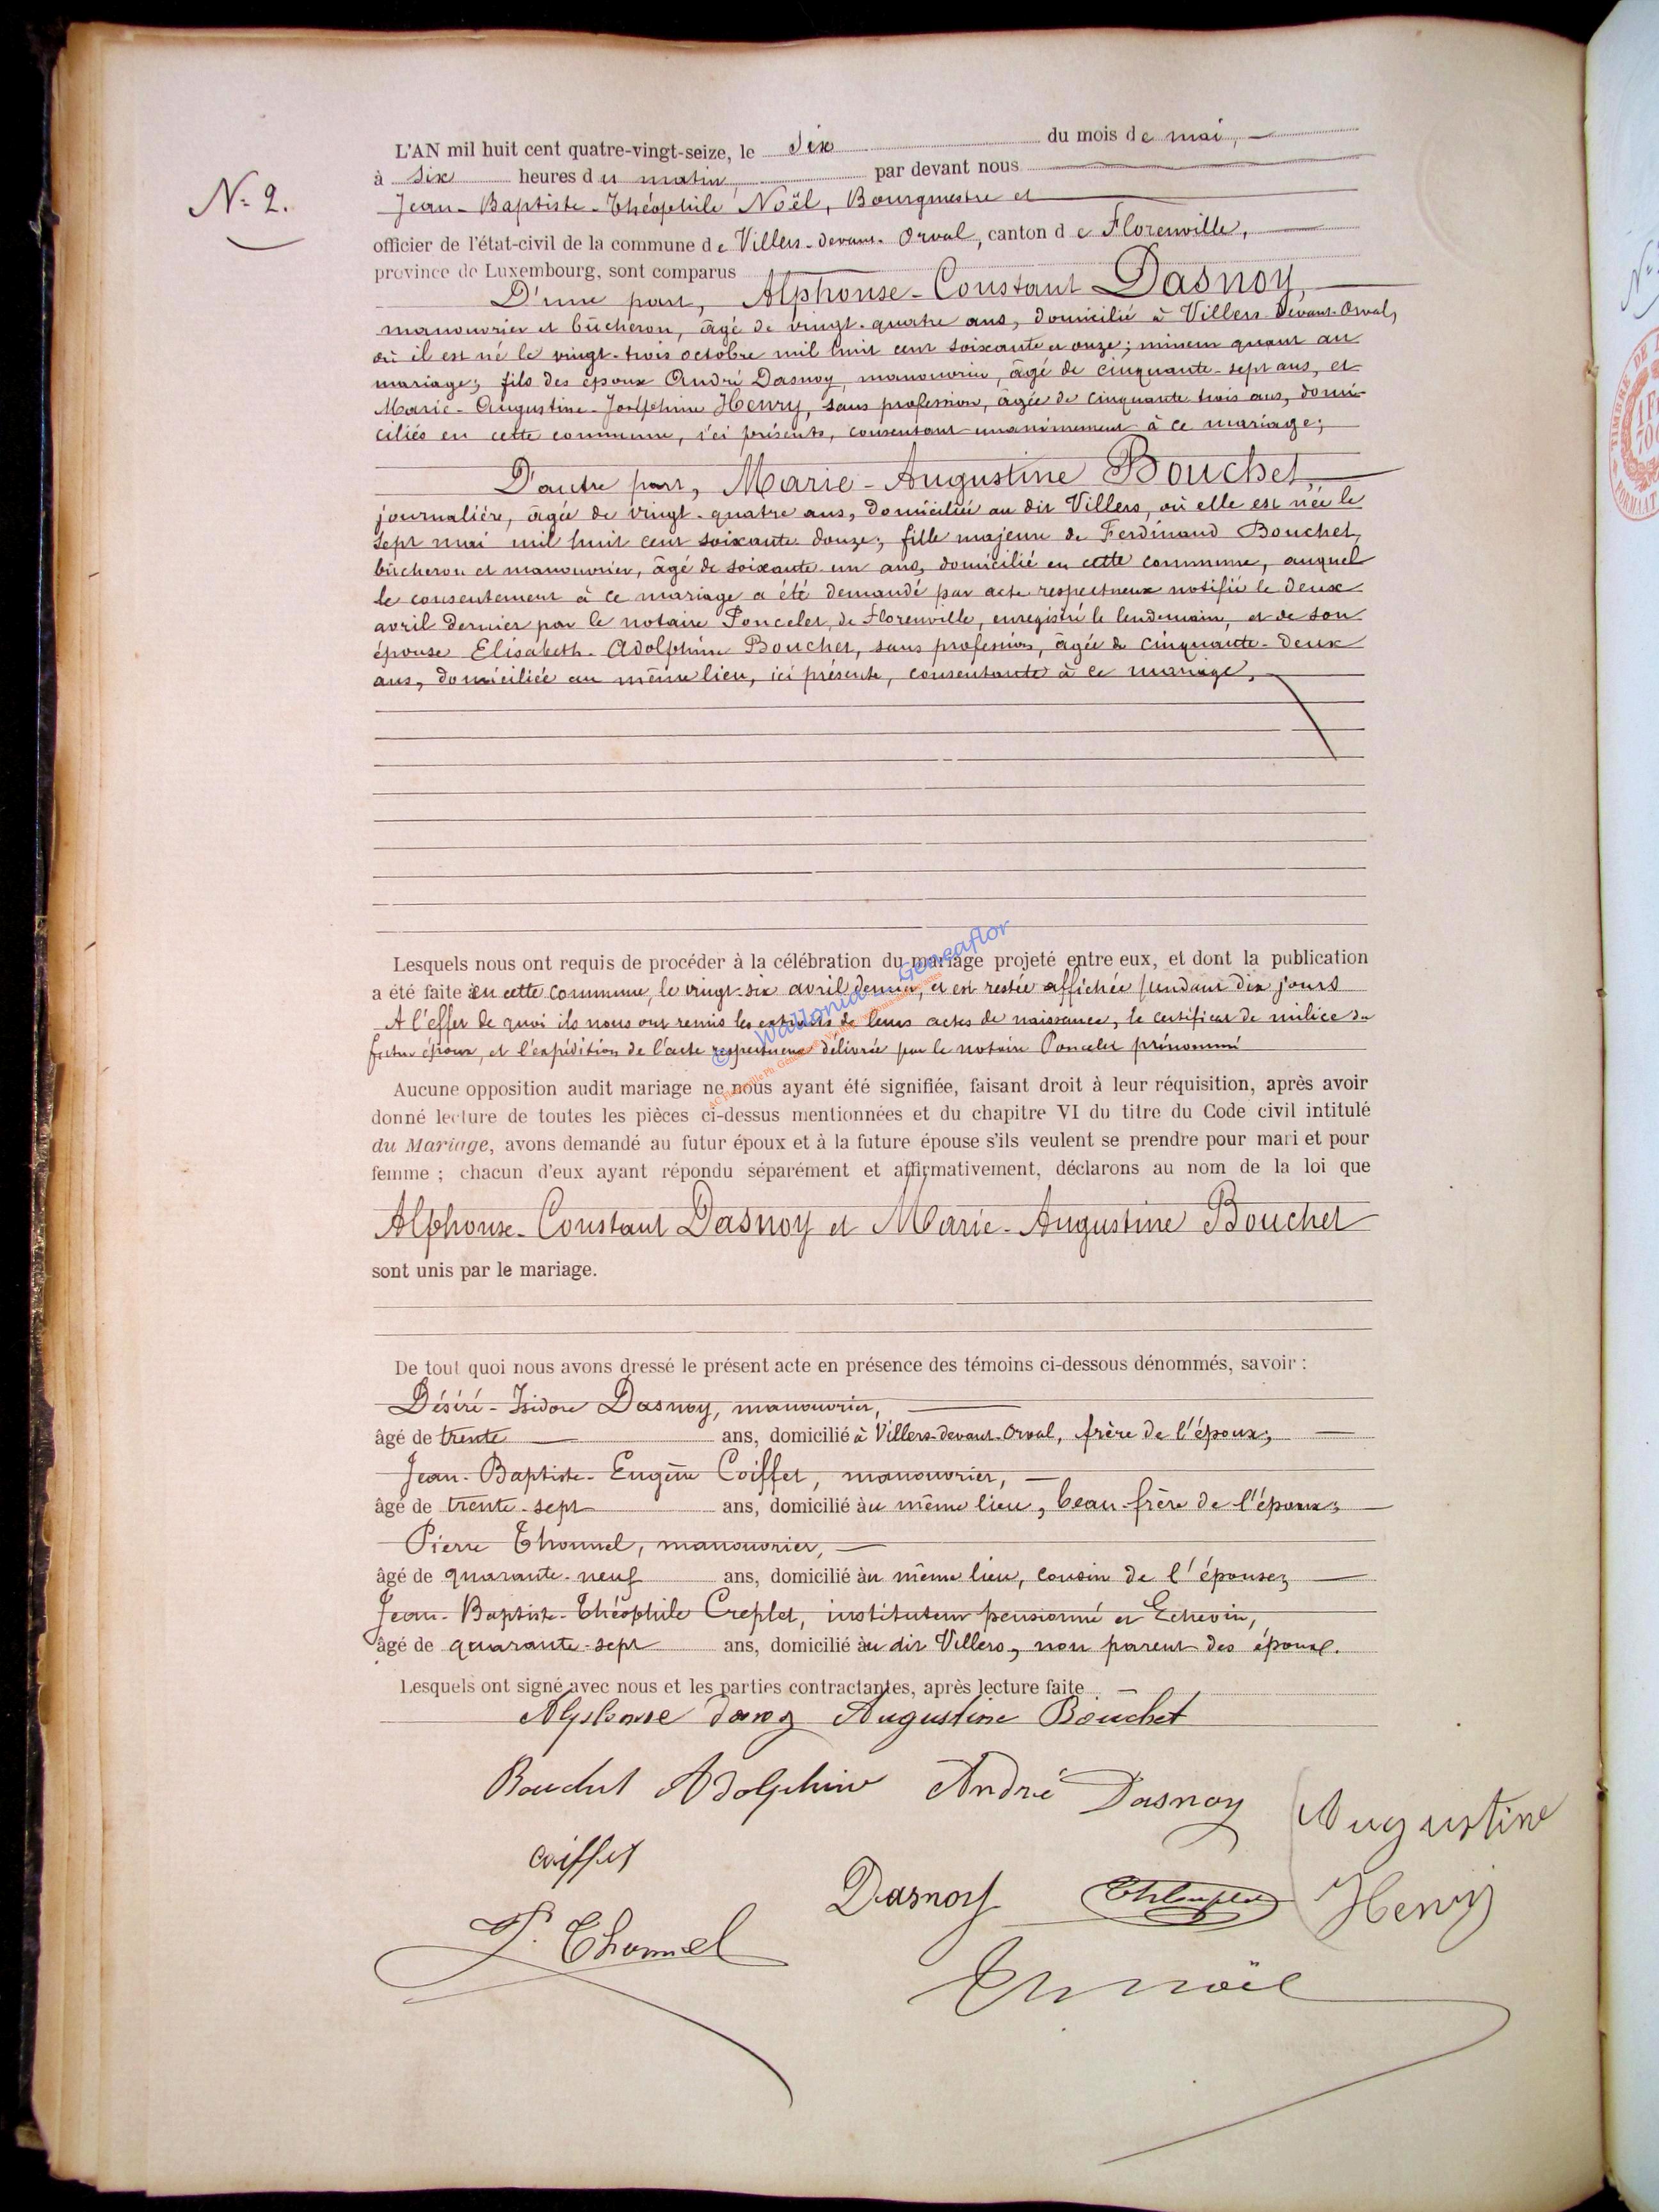 N: 2.
L'AN mil huit cent quatre-vingt-seize, le six du mois de mai,
à six heures du matin, par devant nous
Jean-Baptiste-Théophile Noël, Bourgmestre et
officier de l'état-civil de la commune de Villers-devant-Orval, canton de Florenville,
province de Luxembourg, sont comparus
D'une part, Alphonse-Constant Dasnoy,
manouvrier et bûcheron, âgé de vingt-quatre ans, domicilié à Villers-devant-Orval,
où il est né le vingt-trois octobre mil huit cent soixante et onze; mineur quant au
mariage; fils des époux André Dasnoy, manouvrier, âgé de cinquante-sept ans, et
Marie-Augustine-Joséphine Henry, sans profession, âgée de cinquante trois ans, domi-
ciliés en cette commune, ici présents, consentant unanimement à ce mariage;
D'autre part, Marie-Augustine Bouchet,
journalière, âgée de vingt-quatre ans, domiciliée au dit Villers, où elle est née le
sept mai mil huit cent soixante-douze; fille majeure de Ferdinand Bouchet,
bûcheron et manouvrier, âgé de soixante-un ans, domicilié en cette commune, auquel
le consentement à ce mariage a été demandé par acte respectueux notifié le deux
avril dernier par le notaire Poncelet, de Florenville, enregistré le lendemain, et de son
épouse Elisabeth-Adolphine Bouchet, sans profession, âgée de cinquante-deux
ans, domiciliée au même lieu, ici présente, consentante à ce mariage,
Lesquels nous ont requis de procéder à la célébration du mariage projeté entre eux, et dont la publication
a été faite en cette commune, le vingt-six avril dernier, et en restée affichée pendant dix jours
A l'effet de quoi ils nous ont remis les extraits de leurs actes de naissance, le certificat de milice du
futur époux, et l'expédition de l'acte respectueux délivrée par le notaire Poncelet prénommé
© Wallonia - Geneaflor
Aucune opposition audit mariage ne nous ayant été signifiée, faisant droit à leur réquisition, après avoir
donné lecture de toutes les pièces ci-dessus mentionnées et du chapitre VI du titre du Code civil intitulé
du Mariage, avons demandé au futur époux et à la future épouse s'ils veulent se prendre pour mari et pour
femme ; chacun d'eux ayant répondu séparément et affirmativement, déclarons au nom de la loi que
Alphonse-Constant Dasnoy et Marie-Augustine Bouchet
sont unis par le mariage.
De tout quoi nous avons dressé le présent acte en présence des témoins ci-dessous dénommés, savoir :
Désiré-Isidore Dasnoy, manouvrier,
âgé de trente ans, domicilié à Villers-devant-Orval, frère de l'époux;
Jean-Baptiste-Eugène Coiffet, manouvrier,
âgé de trente-sept ans, domicilié au même lieu, beau-frère de l'époux;
Pierre Thommel, manouvrier,
âgé de quarante-neuf ans, domicilié au même lieu, cousin de l'épouse;
Jean-Baptiste-Théophile Creplet, instituteur pensionné et Echevin,
âgé de quarante-sept ans, domicilié au dit Villers, non parent des époux.
Lesquels ont signé avec nous et les parties contractantes, après lecture faite
Alphonse Augustine Bouchet
Bouchet Adolphine André Dasnoy Augustine
coiffet
Dasnoy Henry
P. Thommel
Th Noël